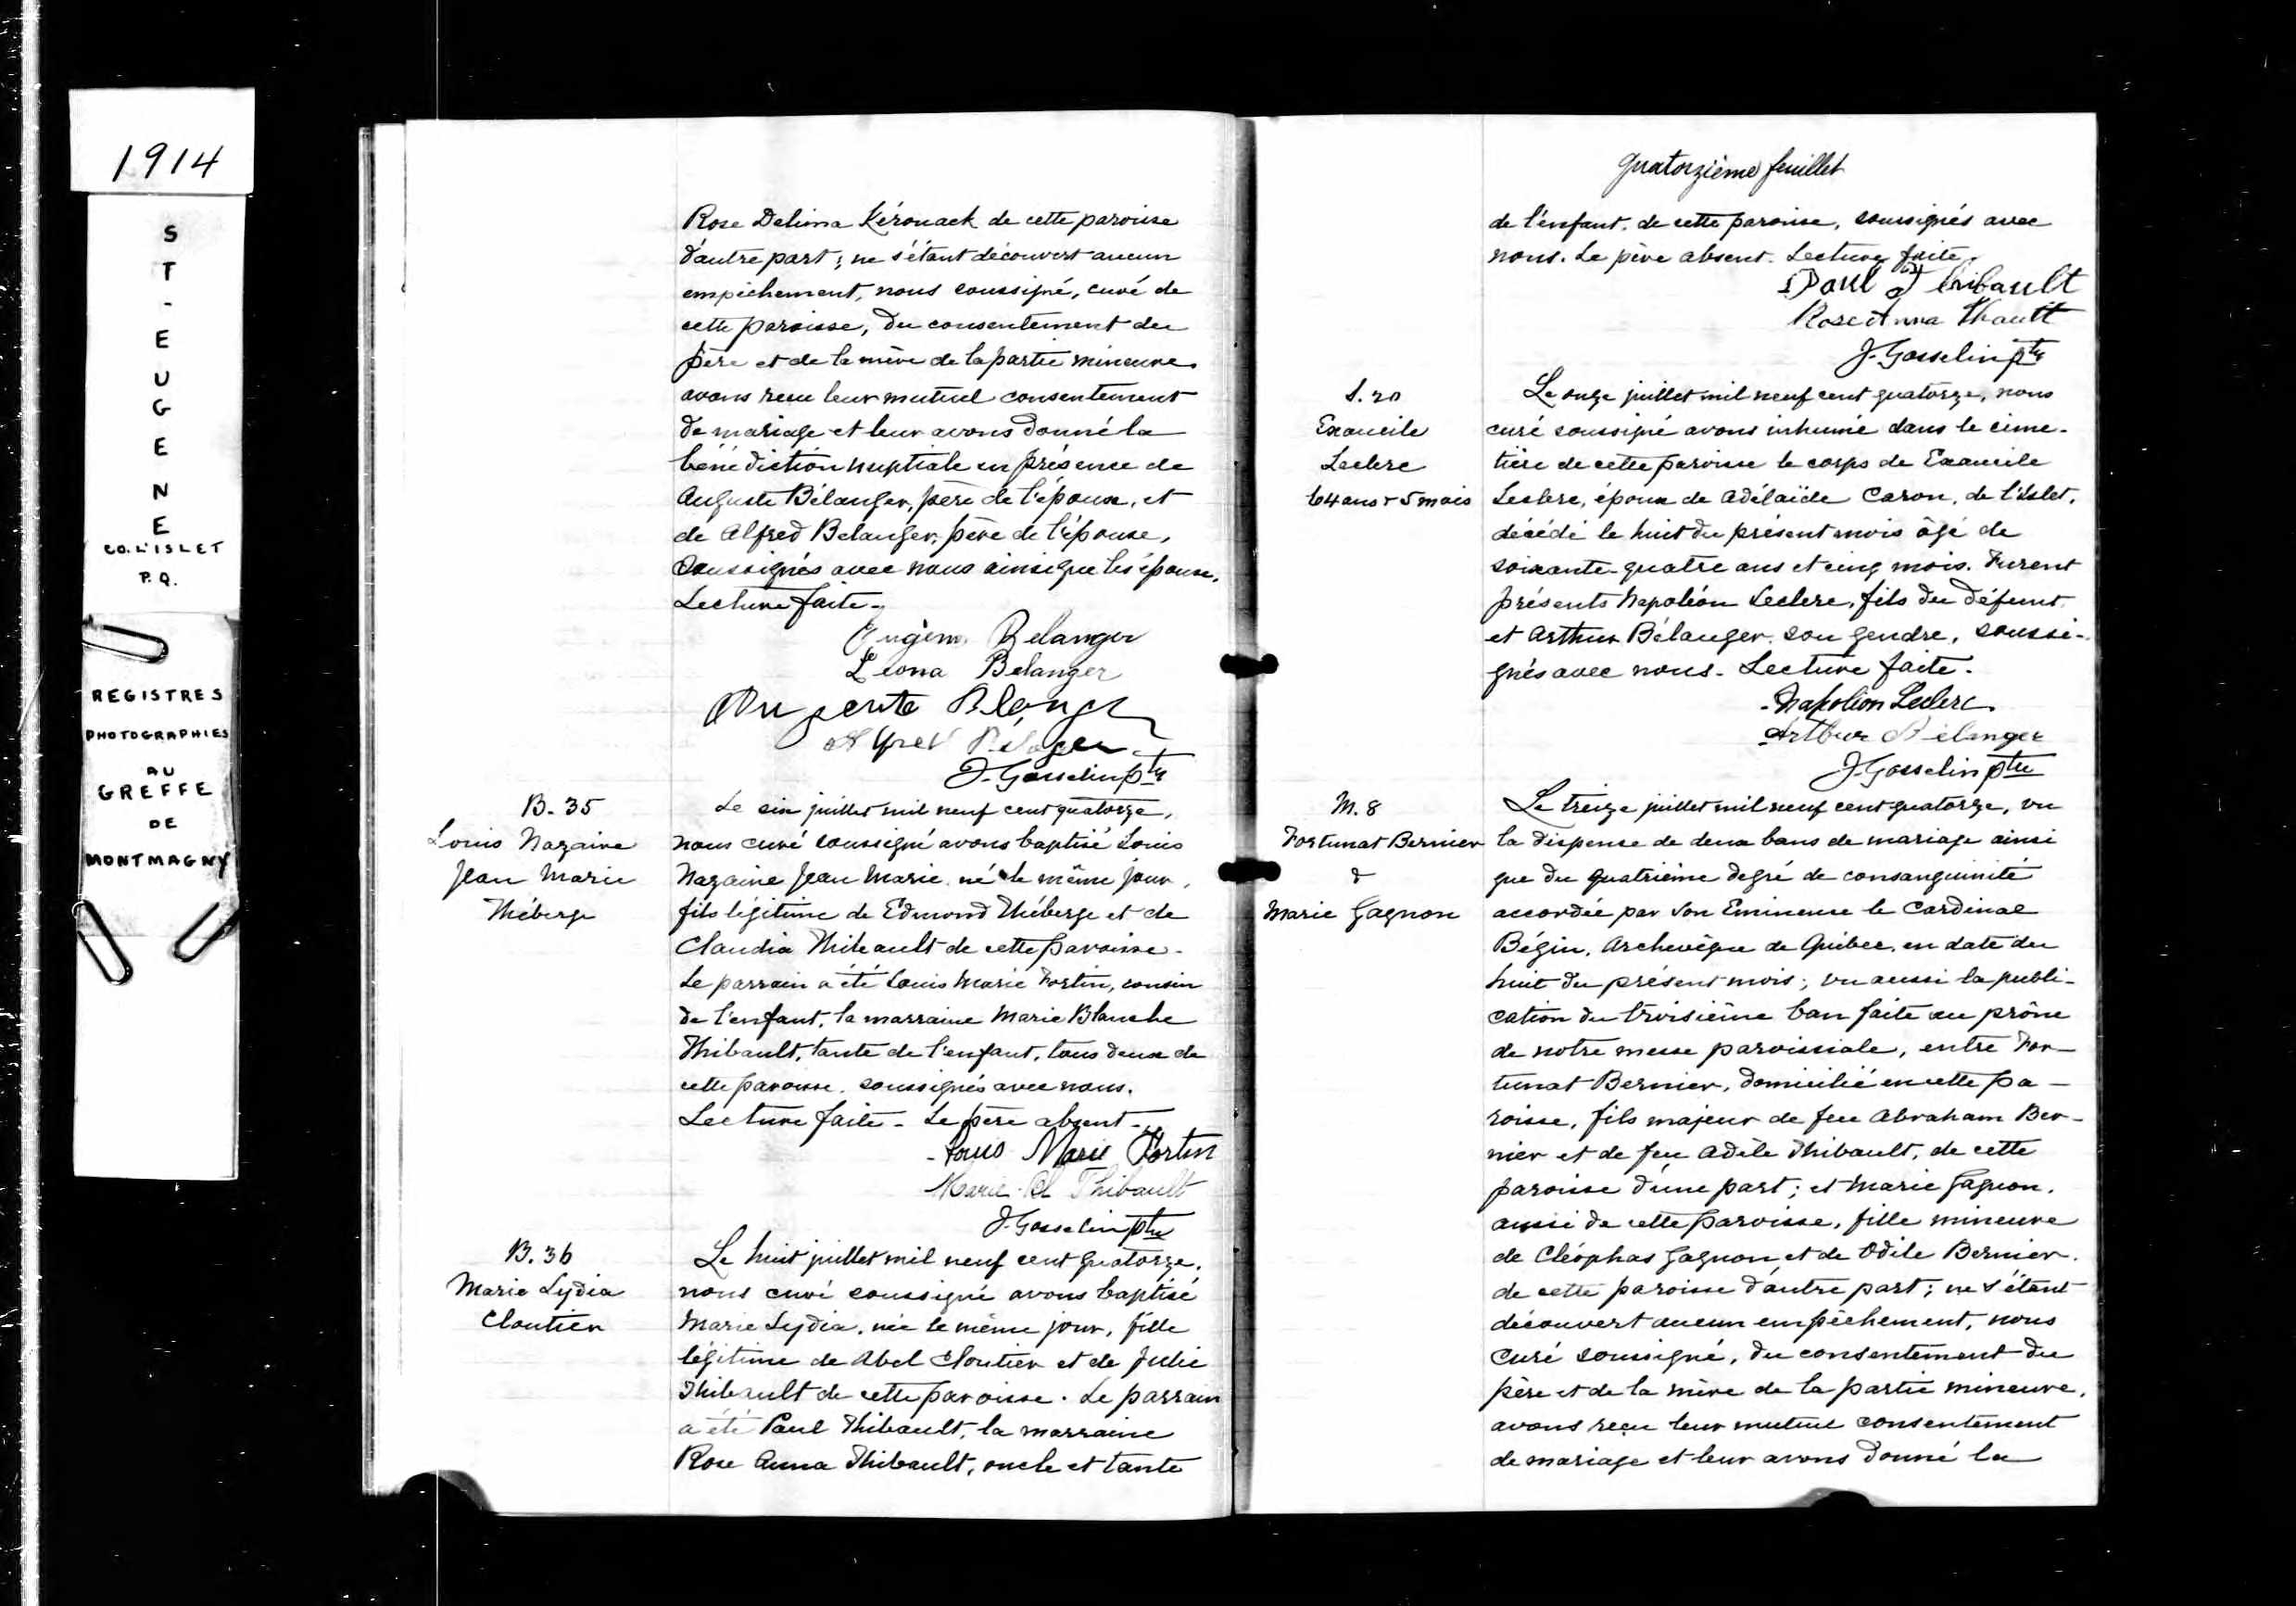 1914
ST-EUGENE
CO. L'ISLET
P.Q.
REGISTRES
PHOTOGRAPHIES
AU
GREFFE
DE
MONTMAGNY
Rose Delima Kérouack de cette paroisse
d'autre part; ne s'étant découvert aucun
empêchement, nous soussigné, curé de
cette paroisse, du consentement du
père et de la mère de la partie mineure
avons reçu leur mutuel consentement
de mariage et leur avons donné la
bénédiction nuptiale en présence de
Auguste Bélanger, père de l'époux, et
de Alfred Bélanger, père de l'épouse,
soussignés avec nous ainsi que les époux.
Lecture faite.
Eugène Belanger
Léona Belanger
J. Gosselin ptre
B. 35
Louis Nazaire
Jean Marie
Théberge
Le six juillet mil neuf cent quatorze,
nous curé soussigné avons baptisé Louis
Nazaire Jean Marie, né le même jour,
fils légitime de Edmond Théberge et de
Claudia Thibault de cette paroisse.
Le parrain a été Louis Marie Fortin, cousin
de l'enfant, la marraine Marie Blanche
Thibault, tante de l'enfant, tous deux de
cette paroisse, soussignés avec nous.
Lecture faite. Le père absent.
Louis Marie Fortin
Marie Bl Thibault
J. Gosselin ptre
B. 36
Marie Lydia
Cloutier
Le huit juillet mil neuf cent quatorze,
nous curé soussigné avons baptisé
Marie Lydia, née le même jour, fille
légitime de Abel Cloutier et de Julie
Thibault de cette paroisse. Le parrain
a été Paul Thibault, la marraine
Rose Anna Thibault, oncle et tante
Quatorzième feuillet
de l'enfant, de cette paroisse, soussignés avec
nous. Le père absent. Lecture faite.
Paul Thibault
Rose Anna Thault
J. Gosselin ptre
S. 20
Exaucile
Leclerc
64 ans & 5 mois
Le onze juillet mil neuf cent quatorze, nous
curé soussigné avons inhumé dans le cime-
tière de cette paroisse le corps de Exaucile
Leclerc, époux de Adélaïde Caron, de l'Islet,
décédé le huit du présent mois âgé de
soixante-quatre ans et cinq mois. Furent
présents Napoléon Leclerc, fils du défunt,
et Arthur Bélanger, son gendre, soussi-
gnés avec nous. Lecture faite.
Napoléon Leclerc
Arthur Bélanger
J. Gosselin ptre
M. 8
Fortunat Bernier
&
Marie Gagnon
Le treize juillet mil neuf cent quatorze, vu
la dispense de deux bans de mariage ainsi
que du quatrième degré de consanguinité
accordée par Son Eminence le Cardinal
Bégin, Archevêque de Québec, en date du
huit du présent mois; vu aussi la publi-
cation du troisième ban faite au prône
de notre messe paroissiale, entre For-
tunat Bernier, domicilié en cette pa-
roisse, fils majeur de feu Abraham Ber-
nier et de feu Adèle Thibault, de cette
paroisse d'une part; et Marie Gagnon,
aussi de cette paroisse, fille mineure
de Cléophas Gagnon et de Odile Bernier,
de cette paroisse d'autre part; ne s'étant
découvert aucun empêchement, nous
curé soussigné, du consentement du
père et de la mère de la partie mineure,
avons reçu leur mutuel consentement
de mariage et leur avons donné la